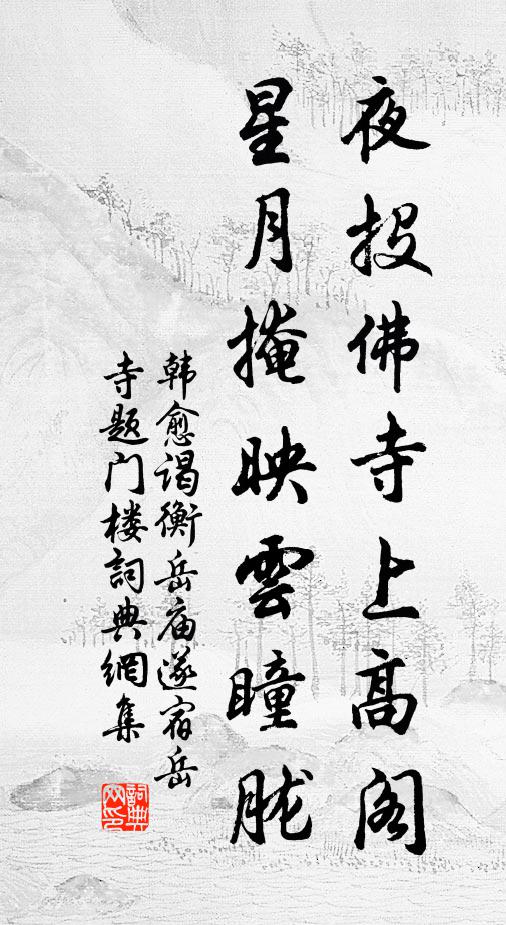 夜投佛寺上高阁
星月掩映雲瞳胧
韩愈谒衡岳庙遂宿岳
寺题门楼詞典網集
詞典
网印